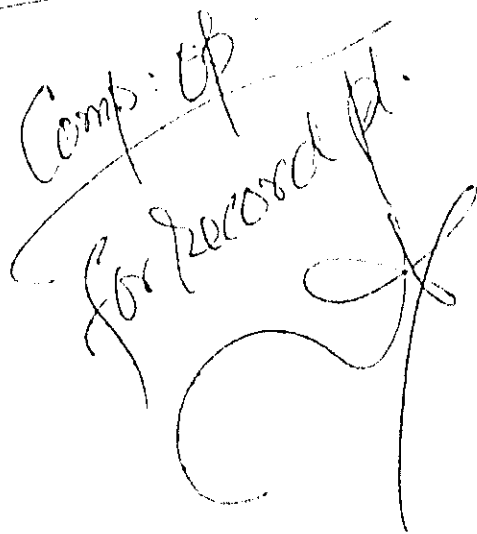 Comp: Op
for record pl.